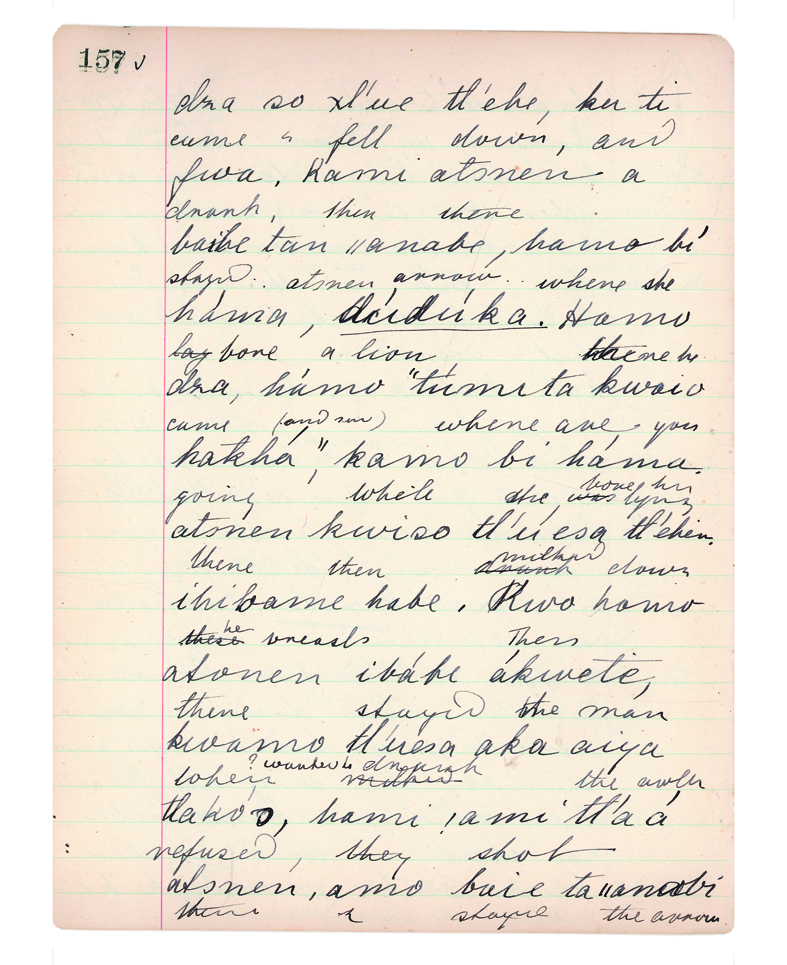 157 ✓
dza so xl'ue tl'ehe, ku ti
came " fell down, and
fwa. Kami atsnen a
drank, then there
baibe tan //anabe, hamo bí
stayed. atsnen arrow.. where she
háma, dúdúka. Hamo
lay bore a lion there he
dza, hámo "túmita kwaio
came (and saw) where are you
hakhá", kamo bi háma.
going while she was lying bore her
atsnen kwiso tl'úesa tl'ehen.
there then drank milked down
ihibame habe. Kwo hamo
these he breasts Then
atsnen ibábe ákwete,
there stayed the man
kwamo tl'úesa aka aiya
when ? wanted to milked drank the
tlakó'o, hami !ami tl'a á
refused, they shot
atsnen, amo baie ta //anabi
there & stayed the arrow